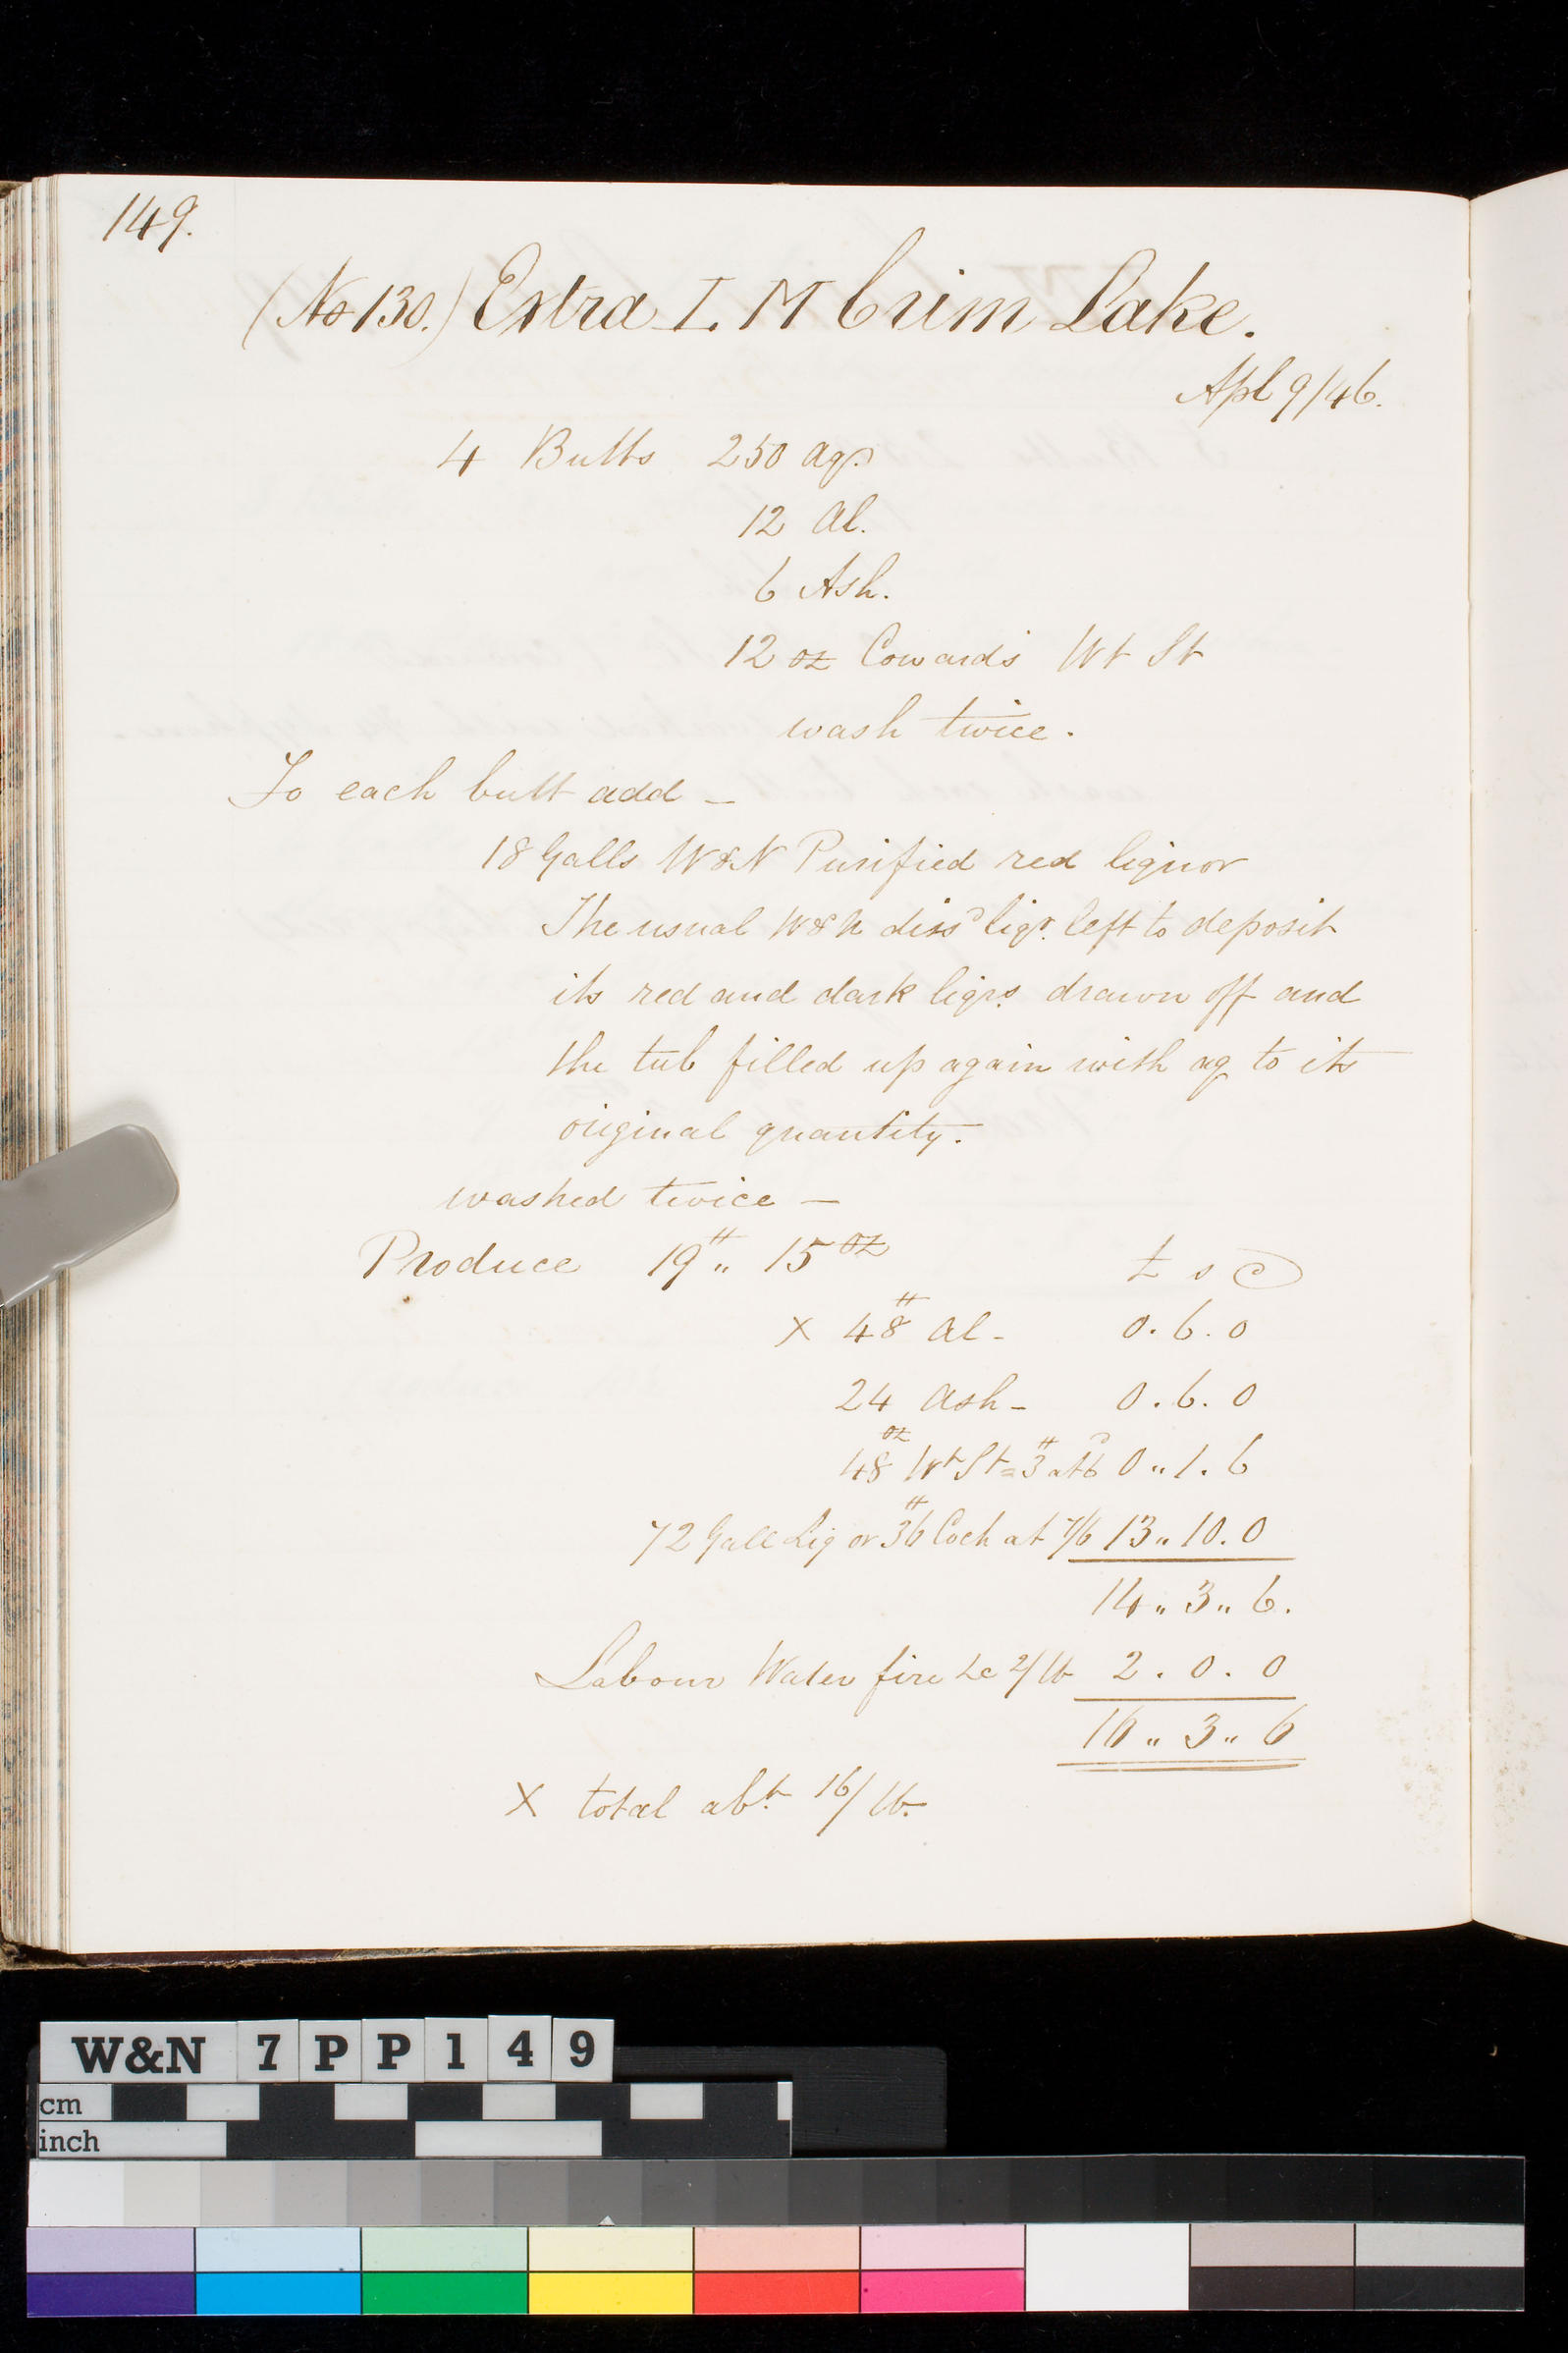 149.
(No 130.) Extra I. M Crim Lake.
Apl 9/46.
4 Butts 250 aqs
12 Al.
6 Ash.
12 oz Cowards Wt St
wash twice.
To each butt add —
18 Galls W&N Purified red liquor
The usual W&N dissd liqr. left to deposit
its red and dark liqrs. drawn off and
the tub filled up again with aq to its
original quantity.
washed twice —
Produce 19 lb „ 15 oz £ s d
x 48 lb Al - 0. 6. 0
24 Ash - 0. 6. 0
48 oz Wt St = 3 lb at 6d 0„ 1. 6
72 Gall Liq or 36 lb Coch at 7/6 13„ 10. 0
14„ 3„ 6.
Labour Water fire &c 2/ lb 2. 0. 0
16„ 3„ 6
x total abt. 16/ lb.
W&N 7 P P 1 4 9
cm
inch